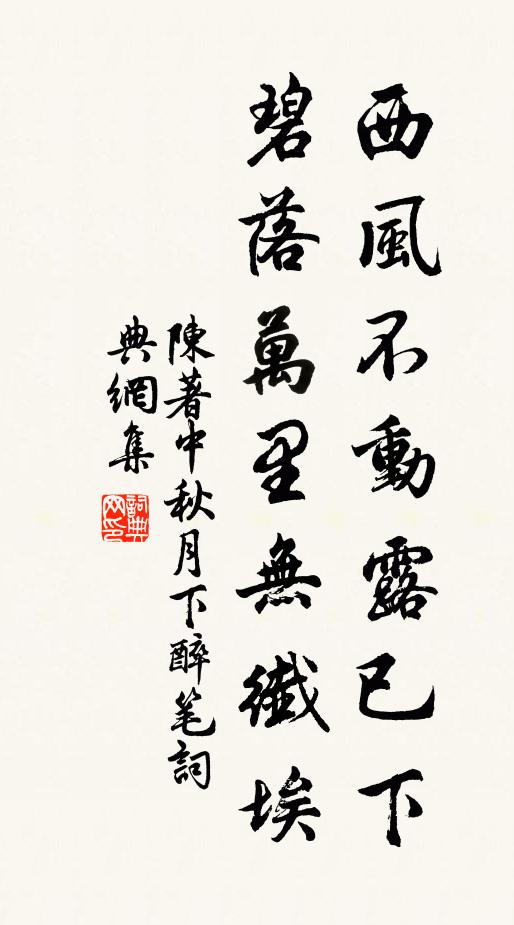 西風不動露已下
碧落萬里無纖埃
陳著中秋月下醉笔詞
典網集
詞典网印